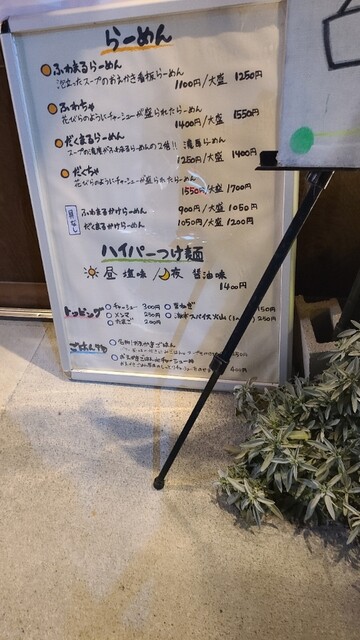 らーめん
ふわまるらーめん
泡立ったスープのおえかき看板らーめん
1100円/大盛 1250円
ふわちゃ
花びらのようにチャーシューが盛られたらーめん
1400円/大盛 1550円
だくまるらーめん
スープの濃度がふわまるらーめんの2倍!! 濃厚らーめん
1250円/大盛 1400円
だくちゃ
花びらのようにチャーシューが盛られたらーめん
1550円/大盛 1700円
具なし
ふわまるかけらーめん 900円/大盛 1050円
だくまるかけらーめん 1050円/大盛 1200円
ハイパーつけ麺
昼 塩味 / 夜 醤油味
1400円
トッピング
チャーシュー 300円
メンマ 250円
たまご 200円
150円
250円
ごはんもの
ごはん
おえかきごはんorチャーシュー丼
400円